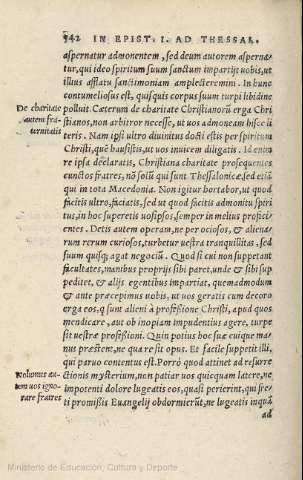 542 IN EPIST. I. AD THESSAL.
aspernatur admonentem, sed deum autorem aspernatur,
qui ideo spiritum suum sanctum impartijt uobis, ut
illius afflatu sanctimoniam amplecteremini. In hunc
contumeliosus est, quisquis corpus suum turpi libidine
polluit. Cæterum de charitate Christianorū erga Christianos,
De charitate
autem fraternitatis
non arbitror necesse, ut uos admoneam hisce literis.
Nam ipsi ultro diuinitus docti estis per spiritum
Christi, quē hausistis, ut uos inuicem diligatis. Id enim
re ipsa declaratis, Christiana charitate prosequentes
cunctos fratres, nō solū qui sunt Thessalonicæ, sed etiā
qui in tota Macedonia. Non igitur hortabor, ut quod
facitis ultro, faciatis, sed ut quod facitis admonitu spiritus,
in hoc superetis uosipsos, semper in melius proficientes.
Detis autem operam, ne per ociosos, & alienarum
rerum curiosos, turbetur uestra tranquillitas, sed
suum quisque agat negociū. Quod si cui non suppetant
facultates, manibus proprijs sibi paret, unde & sibi suppeditet,
& alijs egentibus impartiat, quemadmodum
& ante præcepimus uobis, ut uos geratis cum decoro
erga eos, q̃ sunt alieni à professione Christi, apud quos
mendicare, aut ob inopiam impudentius agere, turpe
sit uestræ professioni. Quin potius hoc suæ cuique manus
præstent, ne qua re sit opus. Et facile suppetit illi,
qui paruo contentus est. Porrò quod attinet ad resurrectionis
Nolumus autem
uos ignorare
fratres
mysterium, non patiar uos quicquam latere, ne
impotenti dolore lugeatis eos, quasi perierint, qui freti
promissis Euangelij obdormierūt, ne lugeatis inquā
ad
Ministerio de Educación, Cultura y Deporte